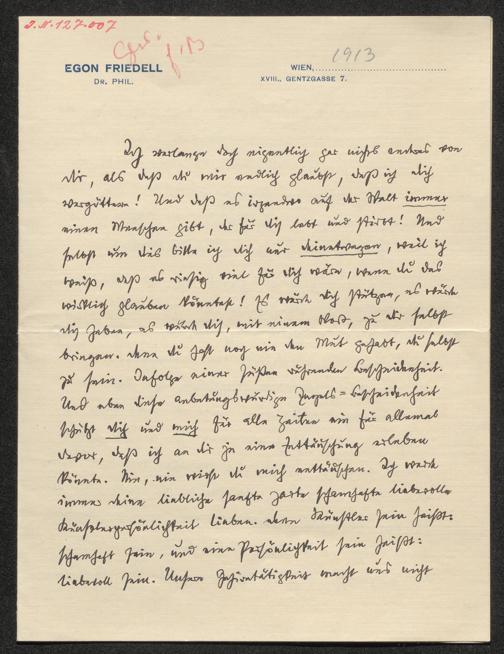 J.N. 127.007
1913
EGON FRIEDELL
DR. PHIL.
WIEN,
XVIII., GENTZGASSE 7.
Ich verlange doch eigentlich gar nichts anderes von
dir, als daß du mir endlich glaubst, daß ich dich
vergöttere! Und daß es irgendwo auf der Welt immer
einen Menschen gibt, der für dich lebt und stirbt! Und
selbst um dies bitte ich dich nur deinetwegen, weil ich
weiß, daß es riesig viel für dich wäre, wenn du das
wirklich glauben könntest! Es würde dich stützen, es würde
dich heben, es würde dich, mit einem Wort, zu dir selbst
bringen. Denn du hast noch nie den Mut gehabt, du selbst
zu sein. Infolge einer süßen rührenden Bescheidenheit.
Und eben diese anbetungswürdige Engels=Bescheidenheit
schützt dich und mich für alle Zeiten ein für allemal
davor, daß ich an dir je eine Enttäuschung erleben
könnte. Nie, nie wirst du mich enttäuschen. Ich werde
immer deine liebliche sanfte zarte schamhafte liebevolle
Künstlerpersönlichkeit lieben. Denn Künstler sein heißt:
schamhaft sein, und eine Persönlichkeit sein heißt:
liebevoll sein. Unsere Gehirntätigkeit macht uns nicht